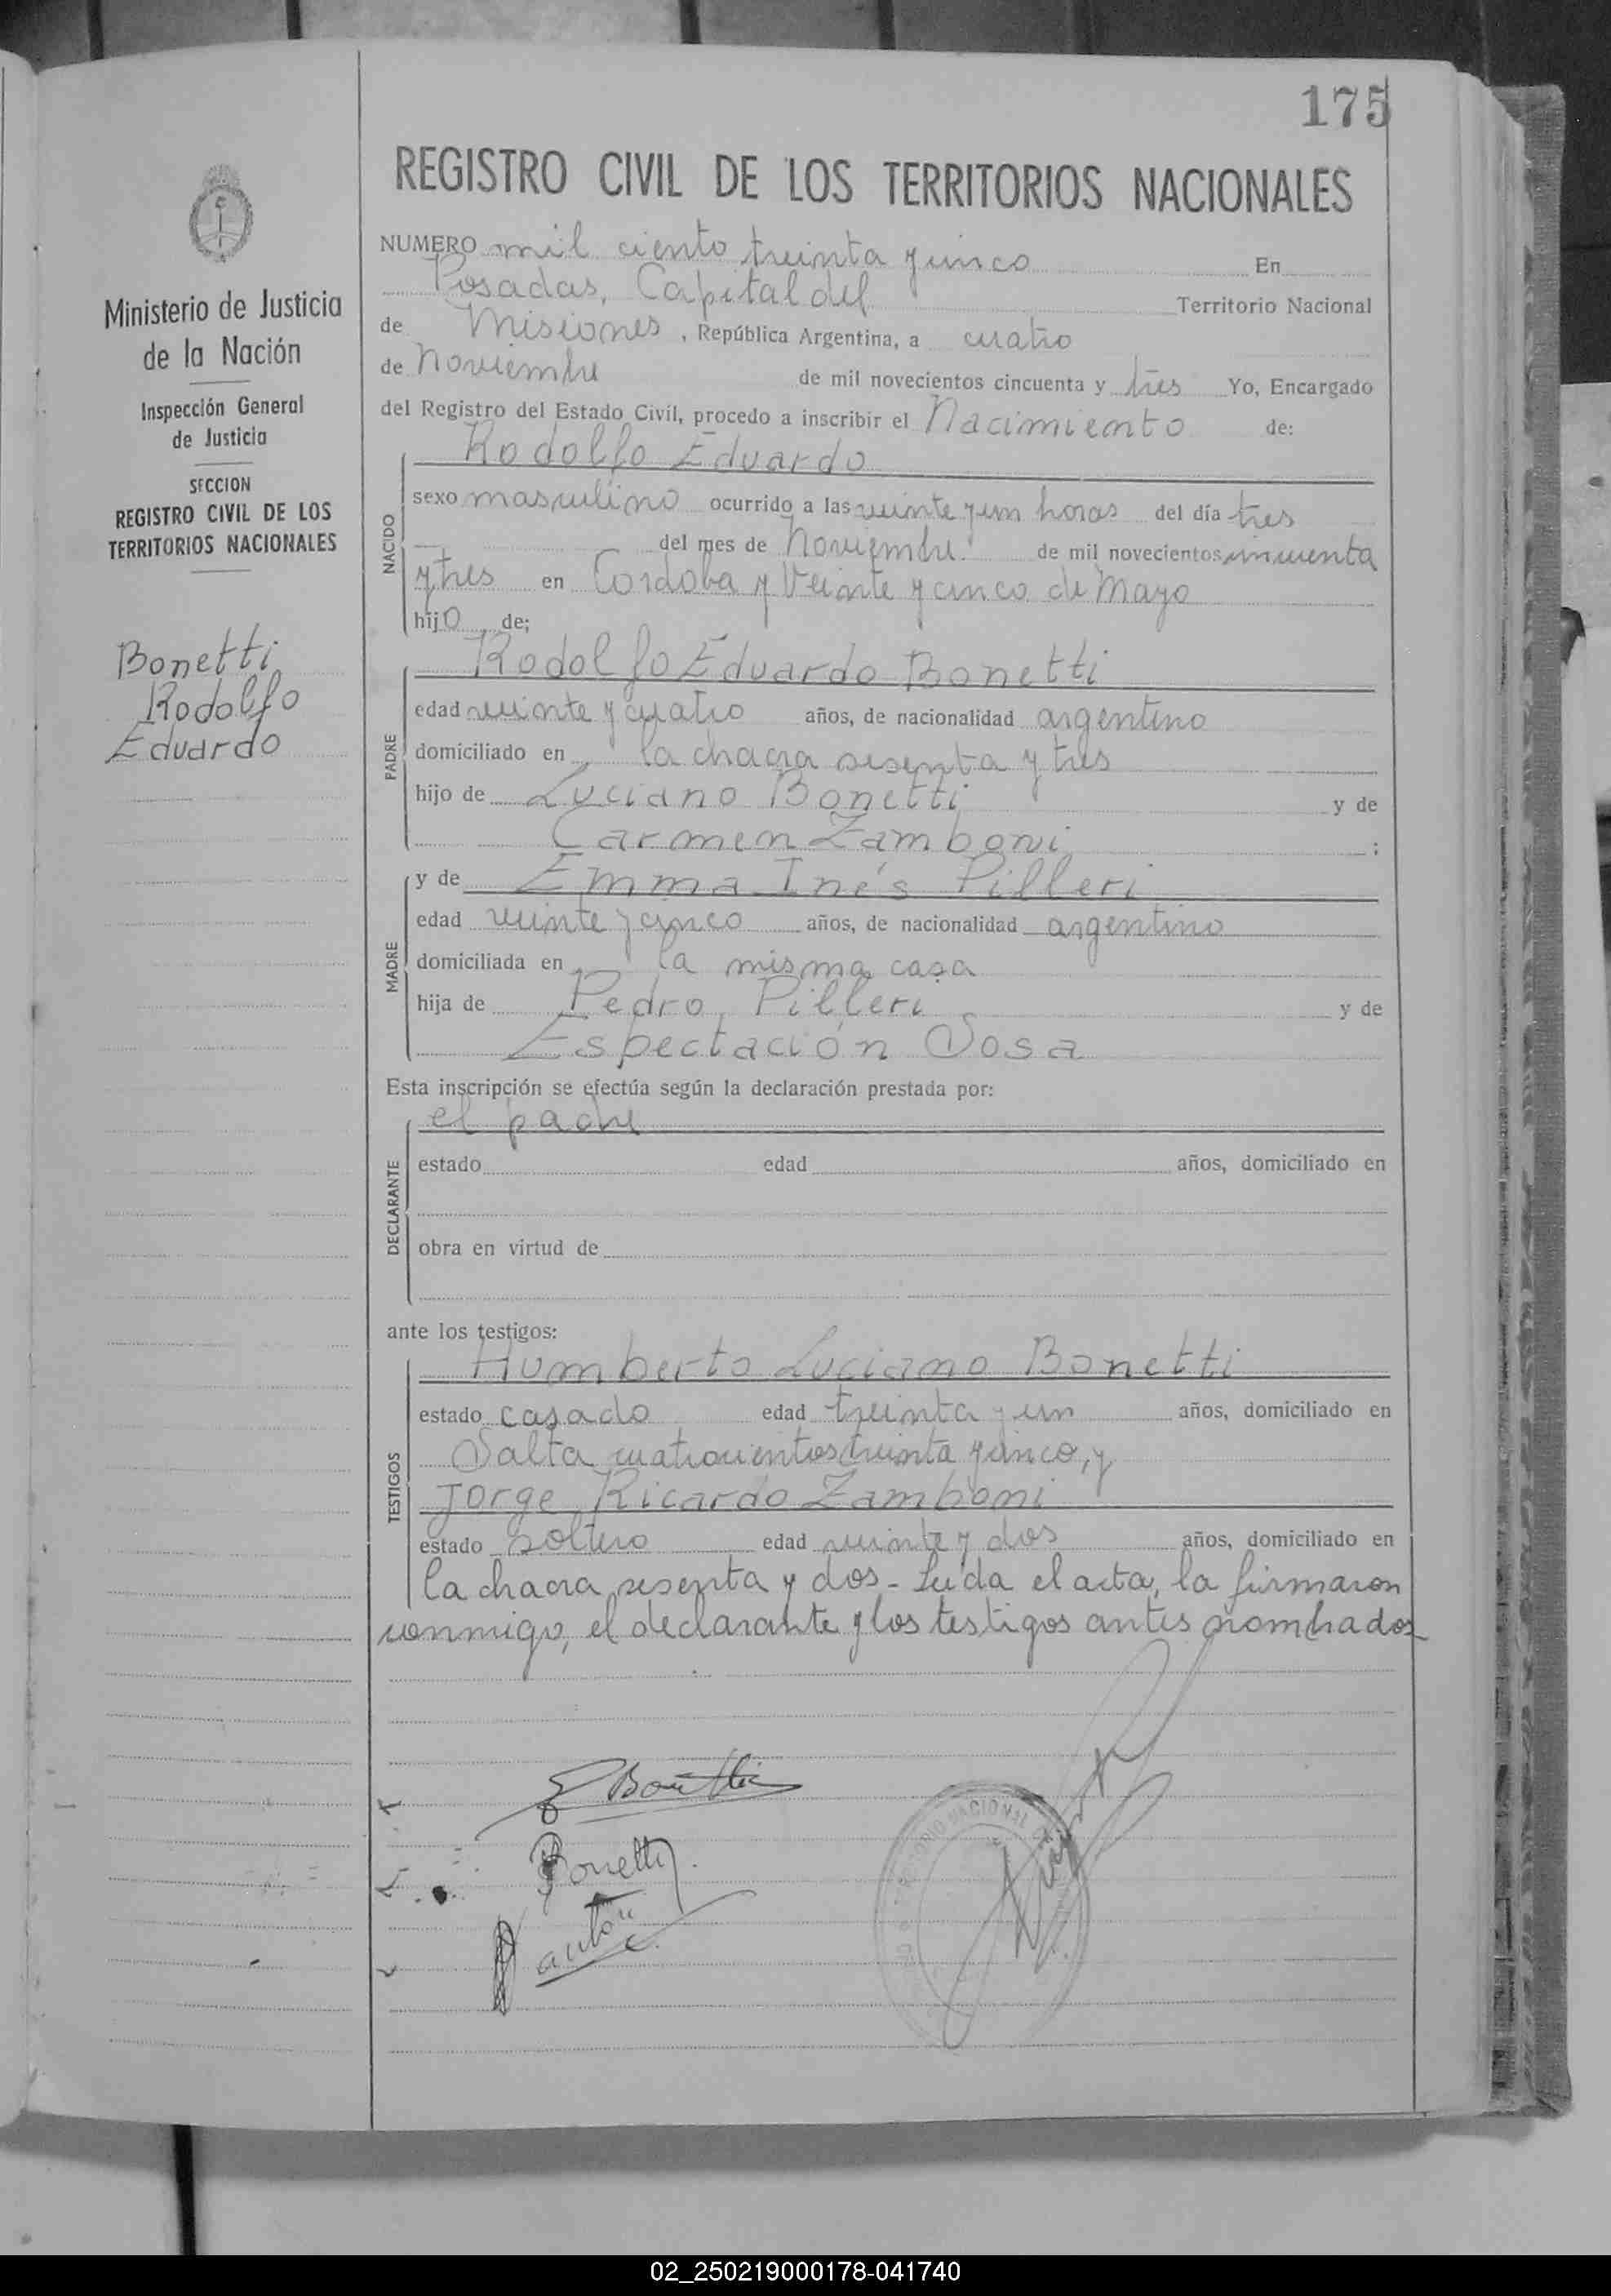 175
REGISTRO CIVIL DE LOS TERRITORIOS NACIONALES
Ministerio de Justicia
de la Nación
Inspección General
de Justicia
SECCION
REGISTRO CIVIL DE LOS
TERRITORIOS NACIONALES
Bonetti
Rodolfo
Eduardo
NUMERO mil ciento treinta y cinco En
Posadas, Capital del Territorio Nacional
de Misiones, República Argentina, a cuatro
de Noviembre de mil novecientos cincuenta y tres Yo, Encargado
del Registro del Estado Civil, procedo a inscribir el Nacimiento de:
NACIDO
Rodolfo Eduardo
sexo masculino ocurrido a las veinte y un horas del día tres
del mes de Noviembre de mil novecientos cincuenta
y tres en Cordoba y Veinte y cinco de Mayo
hijo de;
PADRE
Rodolfo Eduardo Bonetti
edad veinte y cuatro años, de nacionalidad argentino
domiciliado en la chacra sesenta y tres
hijo de Luciano Bonetti y de
Carmen Zamboni ;
MADRE
y de Emma Inés Pilleri
edad veinte y cinco años, de nacionalidad argentino
domiciliada en la misma casa
hija de Pedro Pilleri y de
Espectación Sosa
Esta inscripción se efectúa según la declaración prestada por:
DECLARANTE
el padre
estado edad años, domiciliado en
obra en virtud de
ante los testigos:
TESTIGOS
Humberto Luciano Bonetti
estado casado edad treinta y un años, domiciliado en
Salta cuatrocientos treinta y cinco, y
Jorge Ricardo Zamboni
estado soltero edad veinte y dos años, domiciliado en
la chacra sesenta y dos - Leída el acta, la firmaron
conmigo, el declarante y los testigos antes nombrados
Bonetti
Bonetti
NACIONAL
02_250219000178-041740